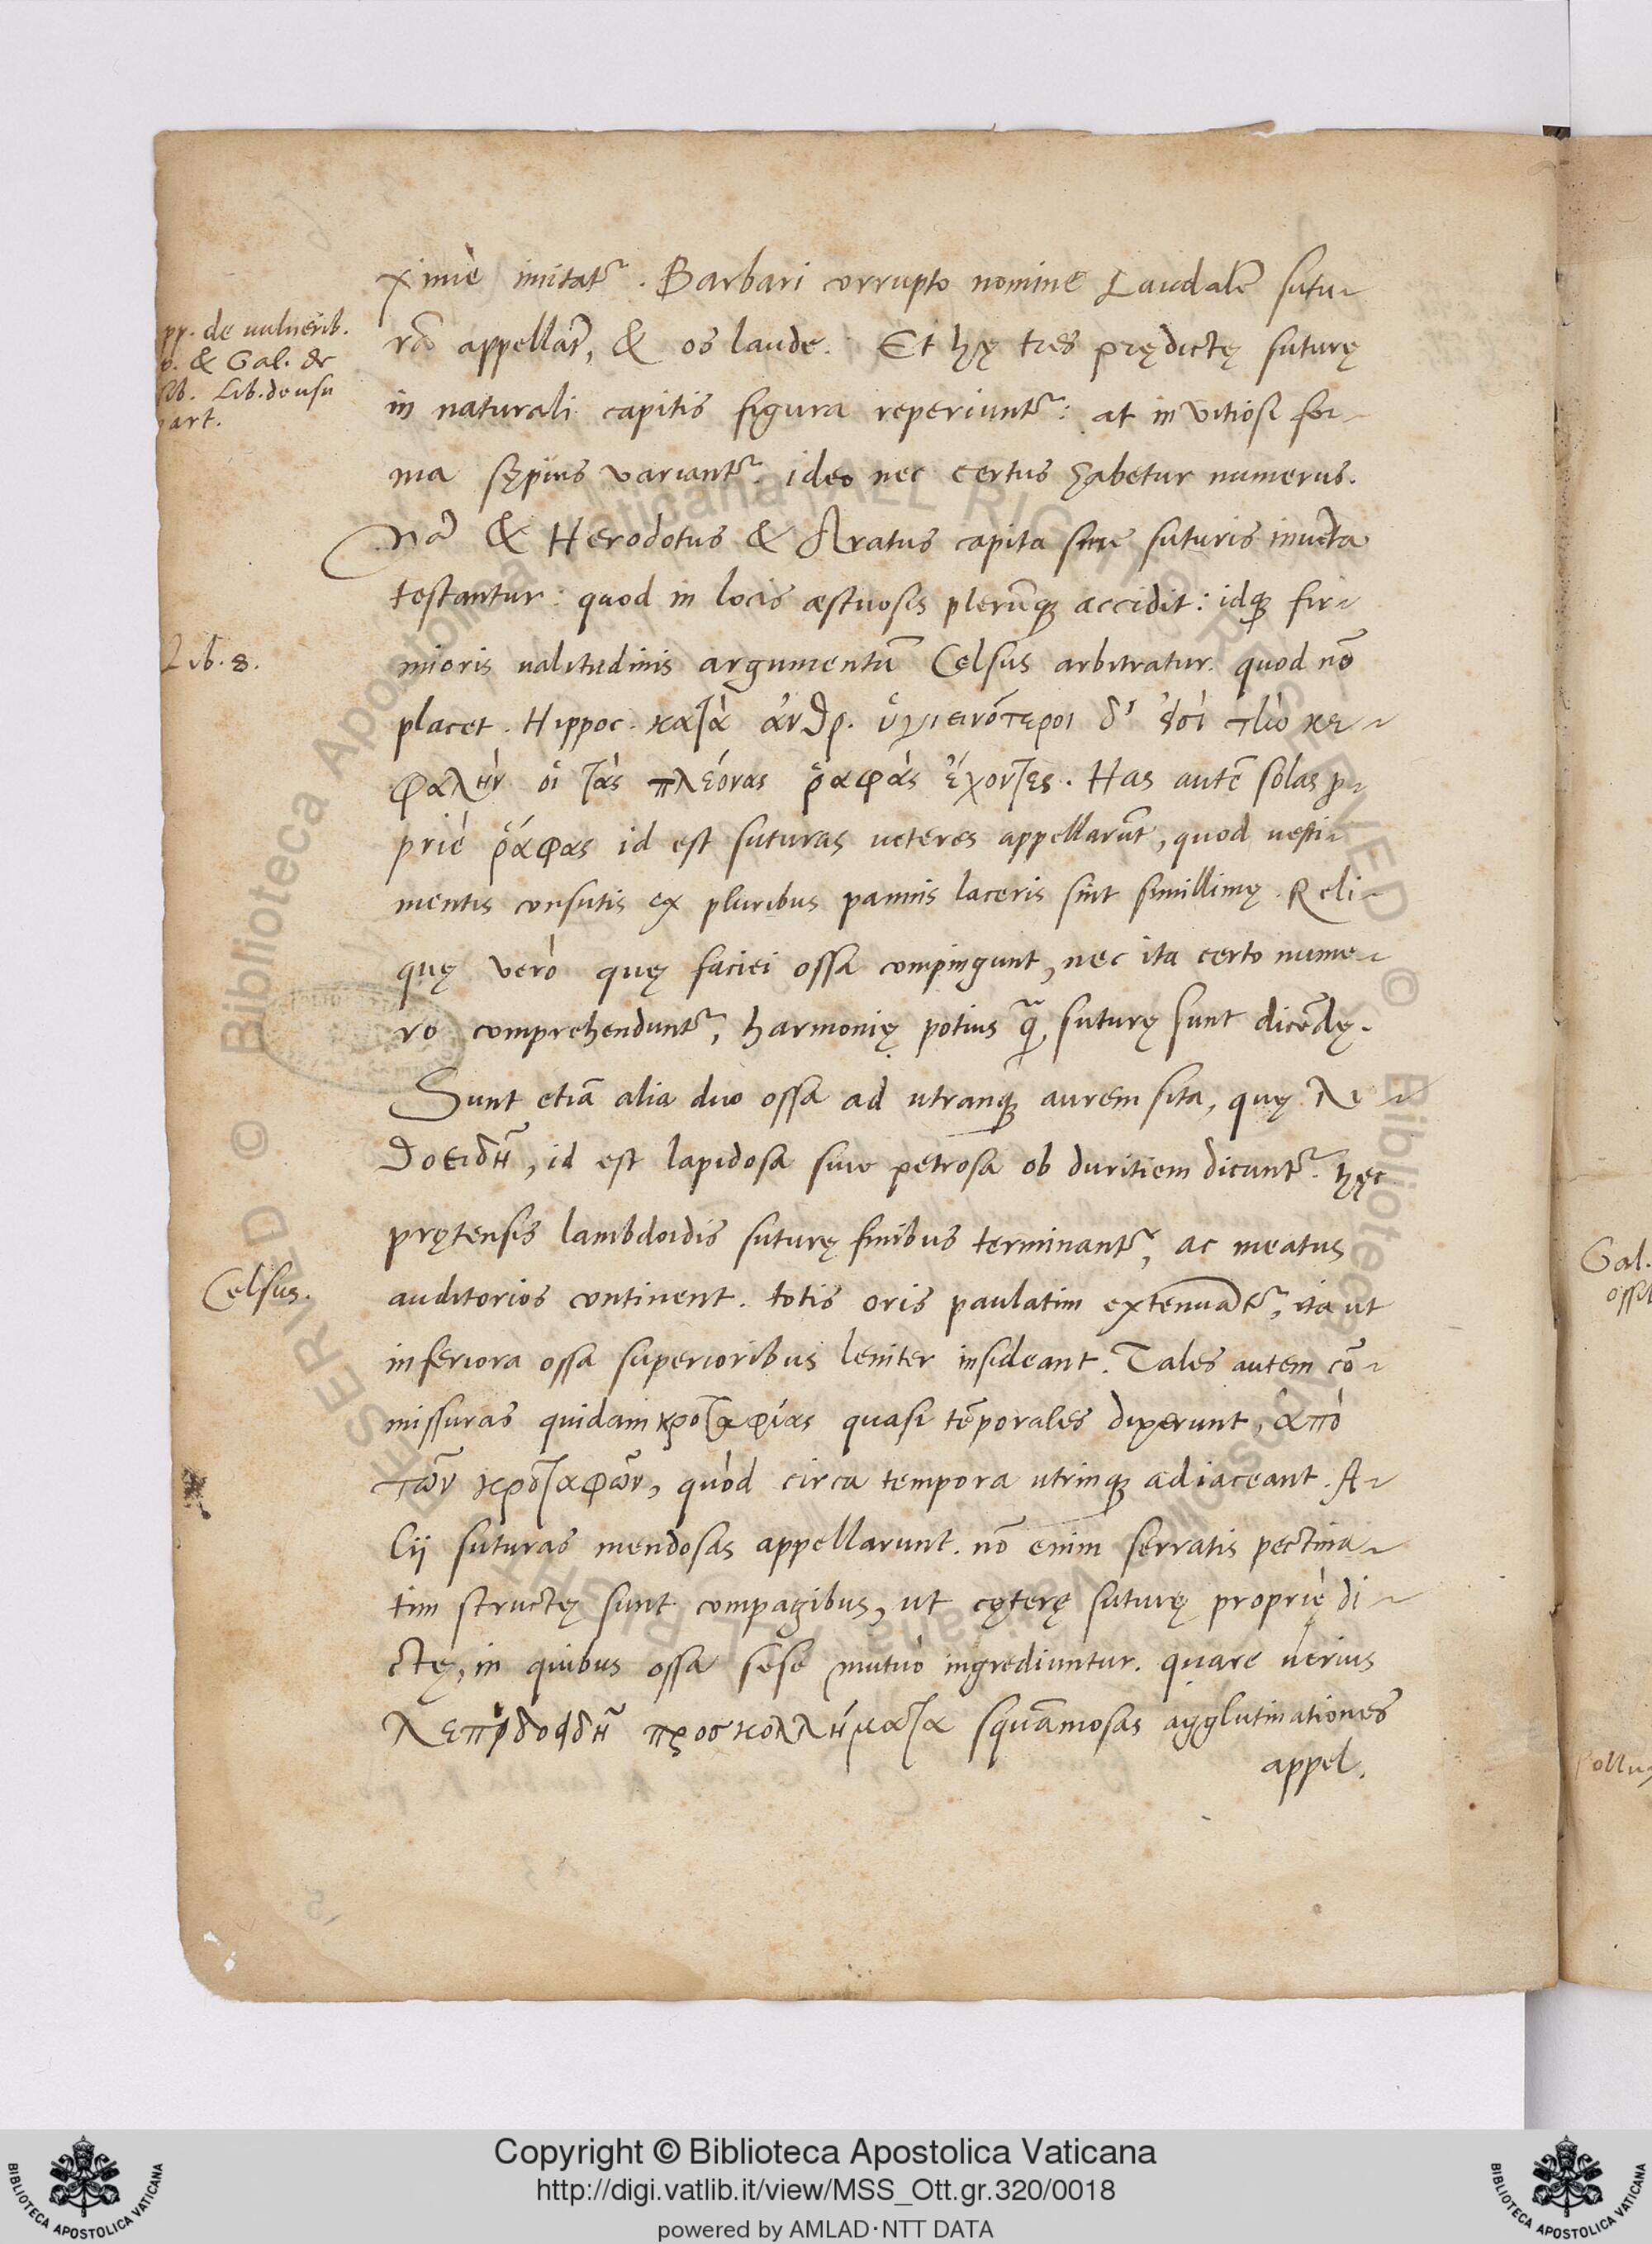 ximè imitatr̃. Barbari corrupto nomine Laudalẽ sutu-
rã appellãt, & os laude. Et hę tres prędictę suturę
in naturali capitis figura reperiuntr̃: at in vitiosi for-
ma sępius variantr̃. ideo nec certus habetur numerus.
Nã & Herodotus & Aratus capita sine suturis inuẽta
testantur: quod in locis æstuosis plerũq; accidit: idq; fir-
mioris ualitudinis argumentũ Celsus arbitratur. quod nõ
placet. Hippoc. κατὰ ἀνδρ. ὑγιεινότεροι δ' εἰσὶ τὴν κε-
φαλὴν οἱ τὰς πλέονας ῥαφὰς ἔχοντες. Has autẽ solas p-
priè ῥάφας id est suturas ueteres appellarũt, quod uesti-
mentis consutis ex pluribus pannis laceris sint simillimę. Reli-
quę verò quę faciei ossa compingunt, nec ita certo nume-
ro comprehenduntr̃, harmonię potius q̃ suturę sunt dicẽdę.
Sunt etiã alia duo ossa ad utranq; aurem sita, quę λι-
θοειδῆ, id est lapidosa siue petrosa ob duritiem dicuntr̃. hęc
prętensis lambdoidis suturę finibus terminantr̃, ac meatus
auditorios continent. totis oris paulatim extenuãtr̃, ita ut
inferiora ossa superioribus leniter insideant. Tales autem cõ-
missuras quidam κροταφίας quasi tẽporales dixerunt, ἀπὸ
τῶν κροταφῶν, quòd circa tempora utrinq; adiaceant. A-
lij suturas mendosas appellarunt. nõ enim serratis pectina-
tim structę sunt compagibus, ut cęterę suturę propriè di-
ctę, in quibus ossa sese mutuò ingrediuntur. quare uerius
λεπιδοειδῆ προσκολλήματα squãmosas agglutinationes
appel.
pp. de uulnerib.
p. & Gal. de
ib. Lib. de usu
part.
Lib. 8.
Celsus.
Gal.
ossib
Pollux
Copyright © Biblioteca Apostolica Vaticana
http://digi.vatlib.it/view/MSS_Ott.gr.320/0018
powered by AMLAD·NTT DATA
BIBLIOTECA APOSTOLICA VATICANA
BIBLIOTECA APOSTOLICA VATICANA